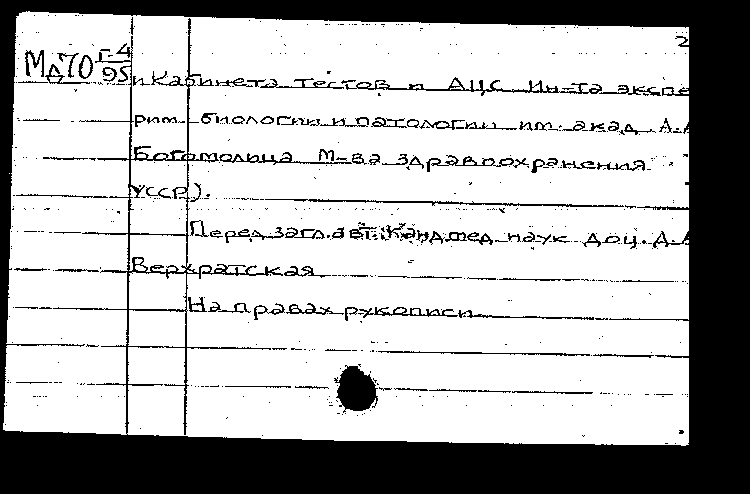 2
Мд70 Г-4
95
и Кабинета тестов и АЦС Ин-та экспе
рим. биологии и патологии им. акад. А.А
Богомольца М-ва здравоохранения
УССР).
Перед загл. авт.: Канд. мед. наук доц. Д.А
Верхратская
На правах рукописи.